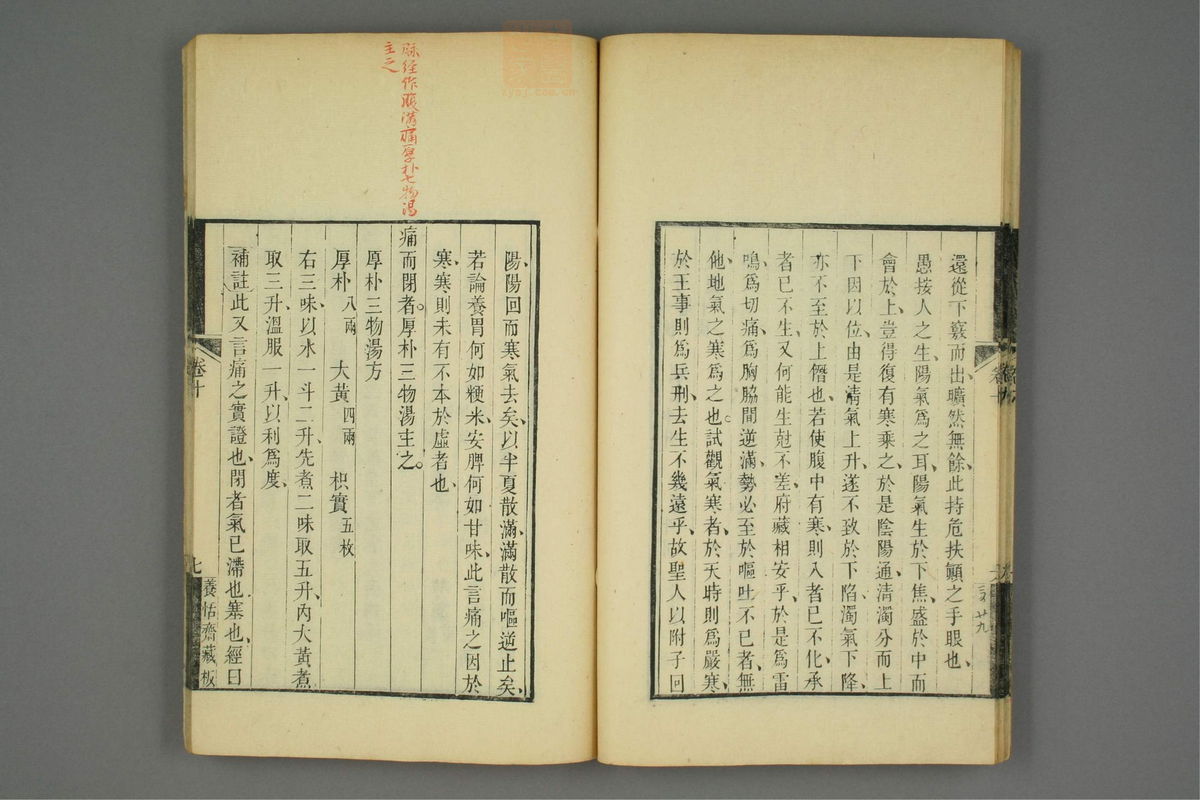 還從下竅而出、曠然無餘、此持危扶顚之手眼也、
愚按人之生、陽氣爲之耳、陽氣生於下焦、盛於中而
會於上、豈得復有寒乘之、於是陰陽通、清濁分、而上
下因以位、由是清氣上升、遂不致於下陷、濁氣下降、
亦不至於上僭也、若使腹中有寒、則入者已不化、承
者已不生、又何能生尅不差、府藏相安乎、於是爲雷
鳴、爲切痛、爲胸脇間逆滿、勢必至於嘔吐不已者、無
他、地氣之寒爲之也。試觀氣寒者、於天時則爲嚴寒、
於王事則爲兵刑、去生不幾遠乎、故聖人以附子回
陽、陽回而寒氣去矣、以半夏散滿、滿散而嘔逆止矣、
若論養胃何如粳米、安脾何如甘味、此言痛之因於
寒、寒則未有不本於虛者也、
痛而閉者。厚朴三物湯主之。
厚朴三物湯方
厚朴八兩 大黃四兩 枳實五枚
右三味、以水一斗二升、先煮二味、取五升、內大黃、煮
取三升、溫服一升、以利爲度、
補註此又言痛之實證也、閉者氣已滯也、塞也、經曰
卷十
七
養恬齋藏板
脉經作腹滿痛厚朴七物湯
主之